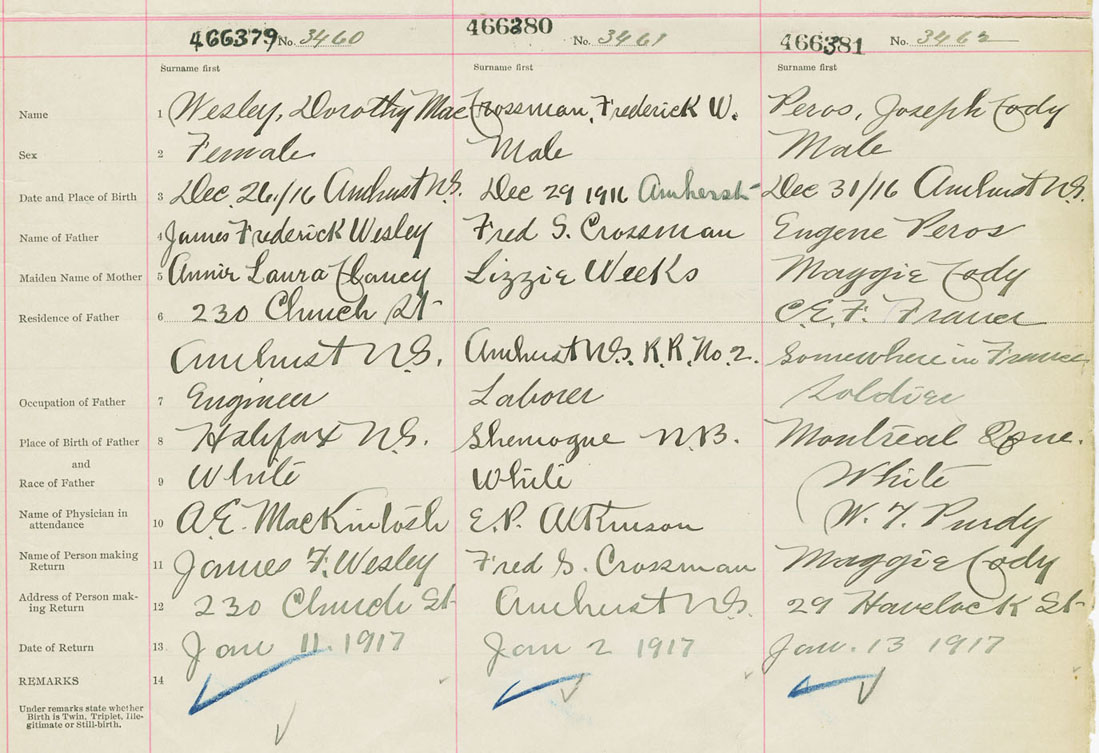 466379 No. 3460 466380 No. 3461 466381 No. 3462
Surname first Surname first Surname first
Name 1 Wesley, Dorothy Mae Crossman, Frederick W. Peros, Joseph Cody
Sex 2 Female Male Male
Date and Place of Birth 3 Dec. 26/16 Amherst N.S. Dec 29 1916 Amherst Dec 31/16 Amherst N.S.
Name of Father 4 James Frederick Wesley Fred S. Crossman Eugene Peros
Maiden Name of Mother 5 Annie Laura Clancy Lizzie Weeks Maggie Cody
Residence of Father 6 230 Church St C.E.F. France
Amherst N.S. Amherst N.S. R.R. No. 2. Somewhere in France
Occupation of Father 7 Engineer Laborer Soldier
Place of Birth of Father 8 Halifax N.S. Shemogue N.B. Montreal Que.
and
Race of Father 9 White White White
Name of Physician in
attendance 10 A.E. MacKintosh E.P. Atkinson W. T. Purdy
Name of Person making
Return 11 James F. Wesley Fred S. Crossman Maggie Cody
Address of Person mak-
ing Return 12 230 Church St Amherst N.S. 29 Havelock St
Date of Return 13 Jan 11. 1917 Jan 2 1917 Jan. 13 1917
REMARKS 14
Under remarks state whether
Birth is Twin, Triplet, Ille-
gitimate or Still-birth.